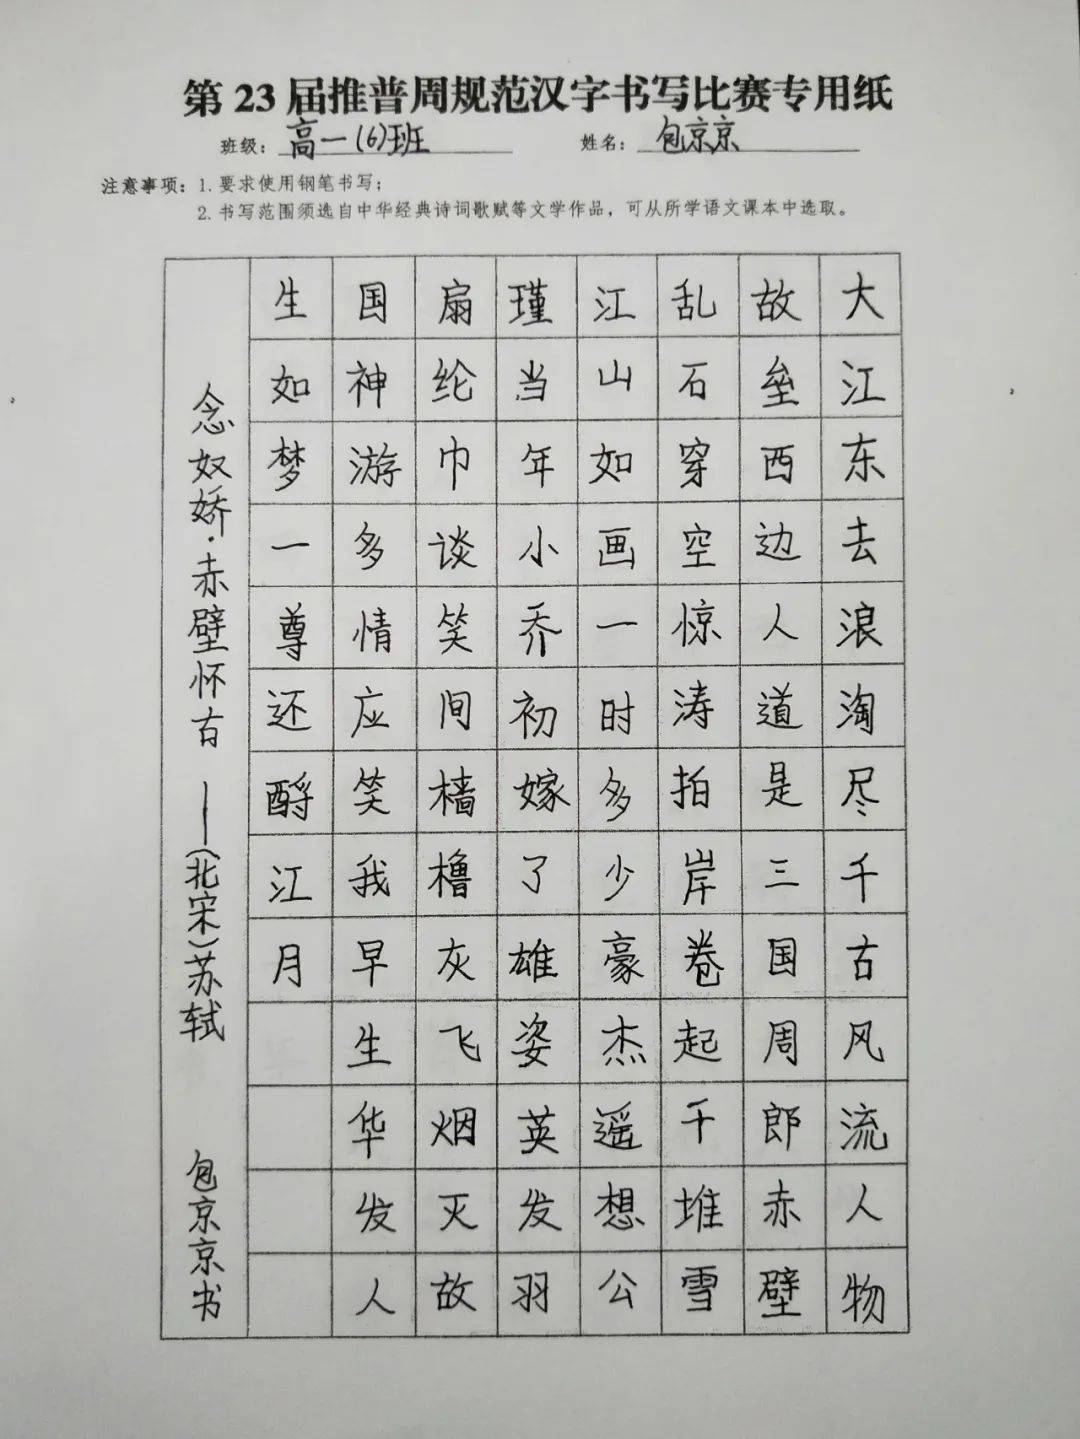 第23届推普周规范汉字书写比赛专用纸
班级：高一(6)班 姓名：包京京
注意事项：1. 要求使用钢笔书写；
2. 书写范围须选自中华经典诗词歌赋等文学作品，可从所学语文课本中选取。
大江东去浪淘尽千古风流人物
故垒西边人道是三国周郎赤壁
乱石穿空惊涛拍岸卷起千堆雪
江山如画一时多少豪杰遥想公
瑾当年小乔初嫁了雄姿英发羽
扇纶巾谈笑间樯橹灰飞烟灭故
国神游多情应笑我早生华发人
生如梦一尊还酹江月
念奴娇·赤壁怀古 ——(北宋)苏轼 包京京书